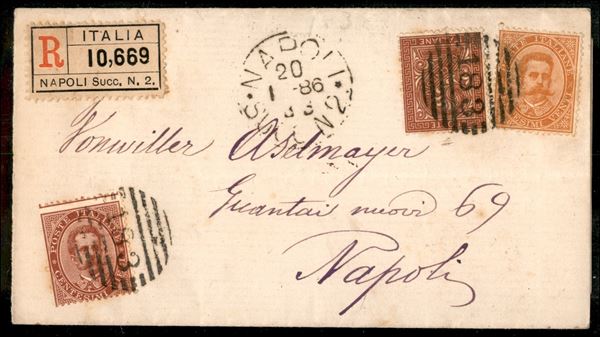 R ITALIA
10,669
NAPOLI Succ. N. 2.
NAPOLI
20
1 -86
N2
POSTE ITALIANE
Vonwiller Aselmayer
Guantai nuovi 69
Napoli
POSTE ITALIANE
CENTESIMI